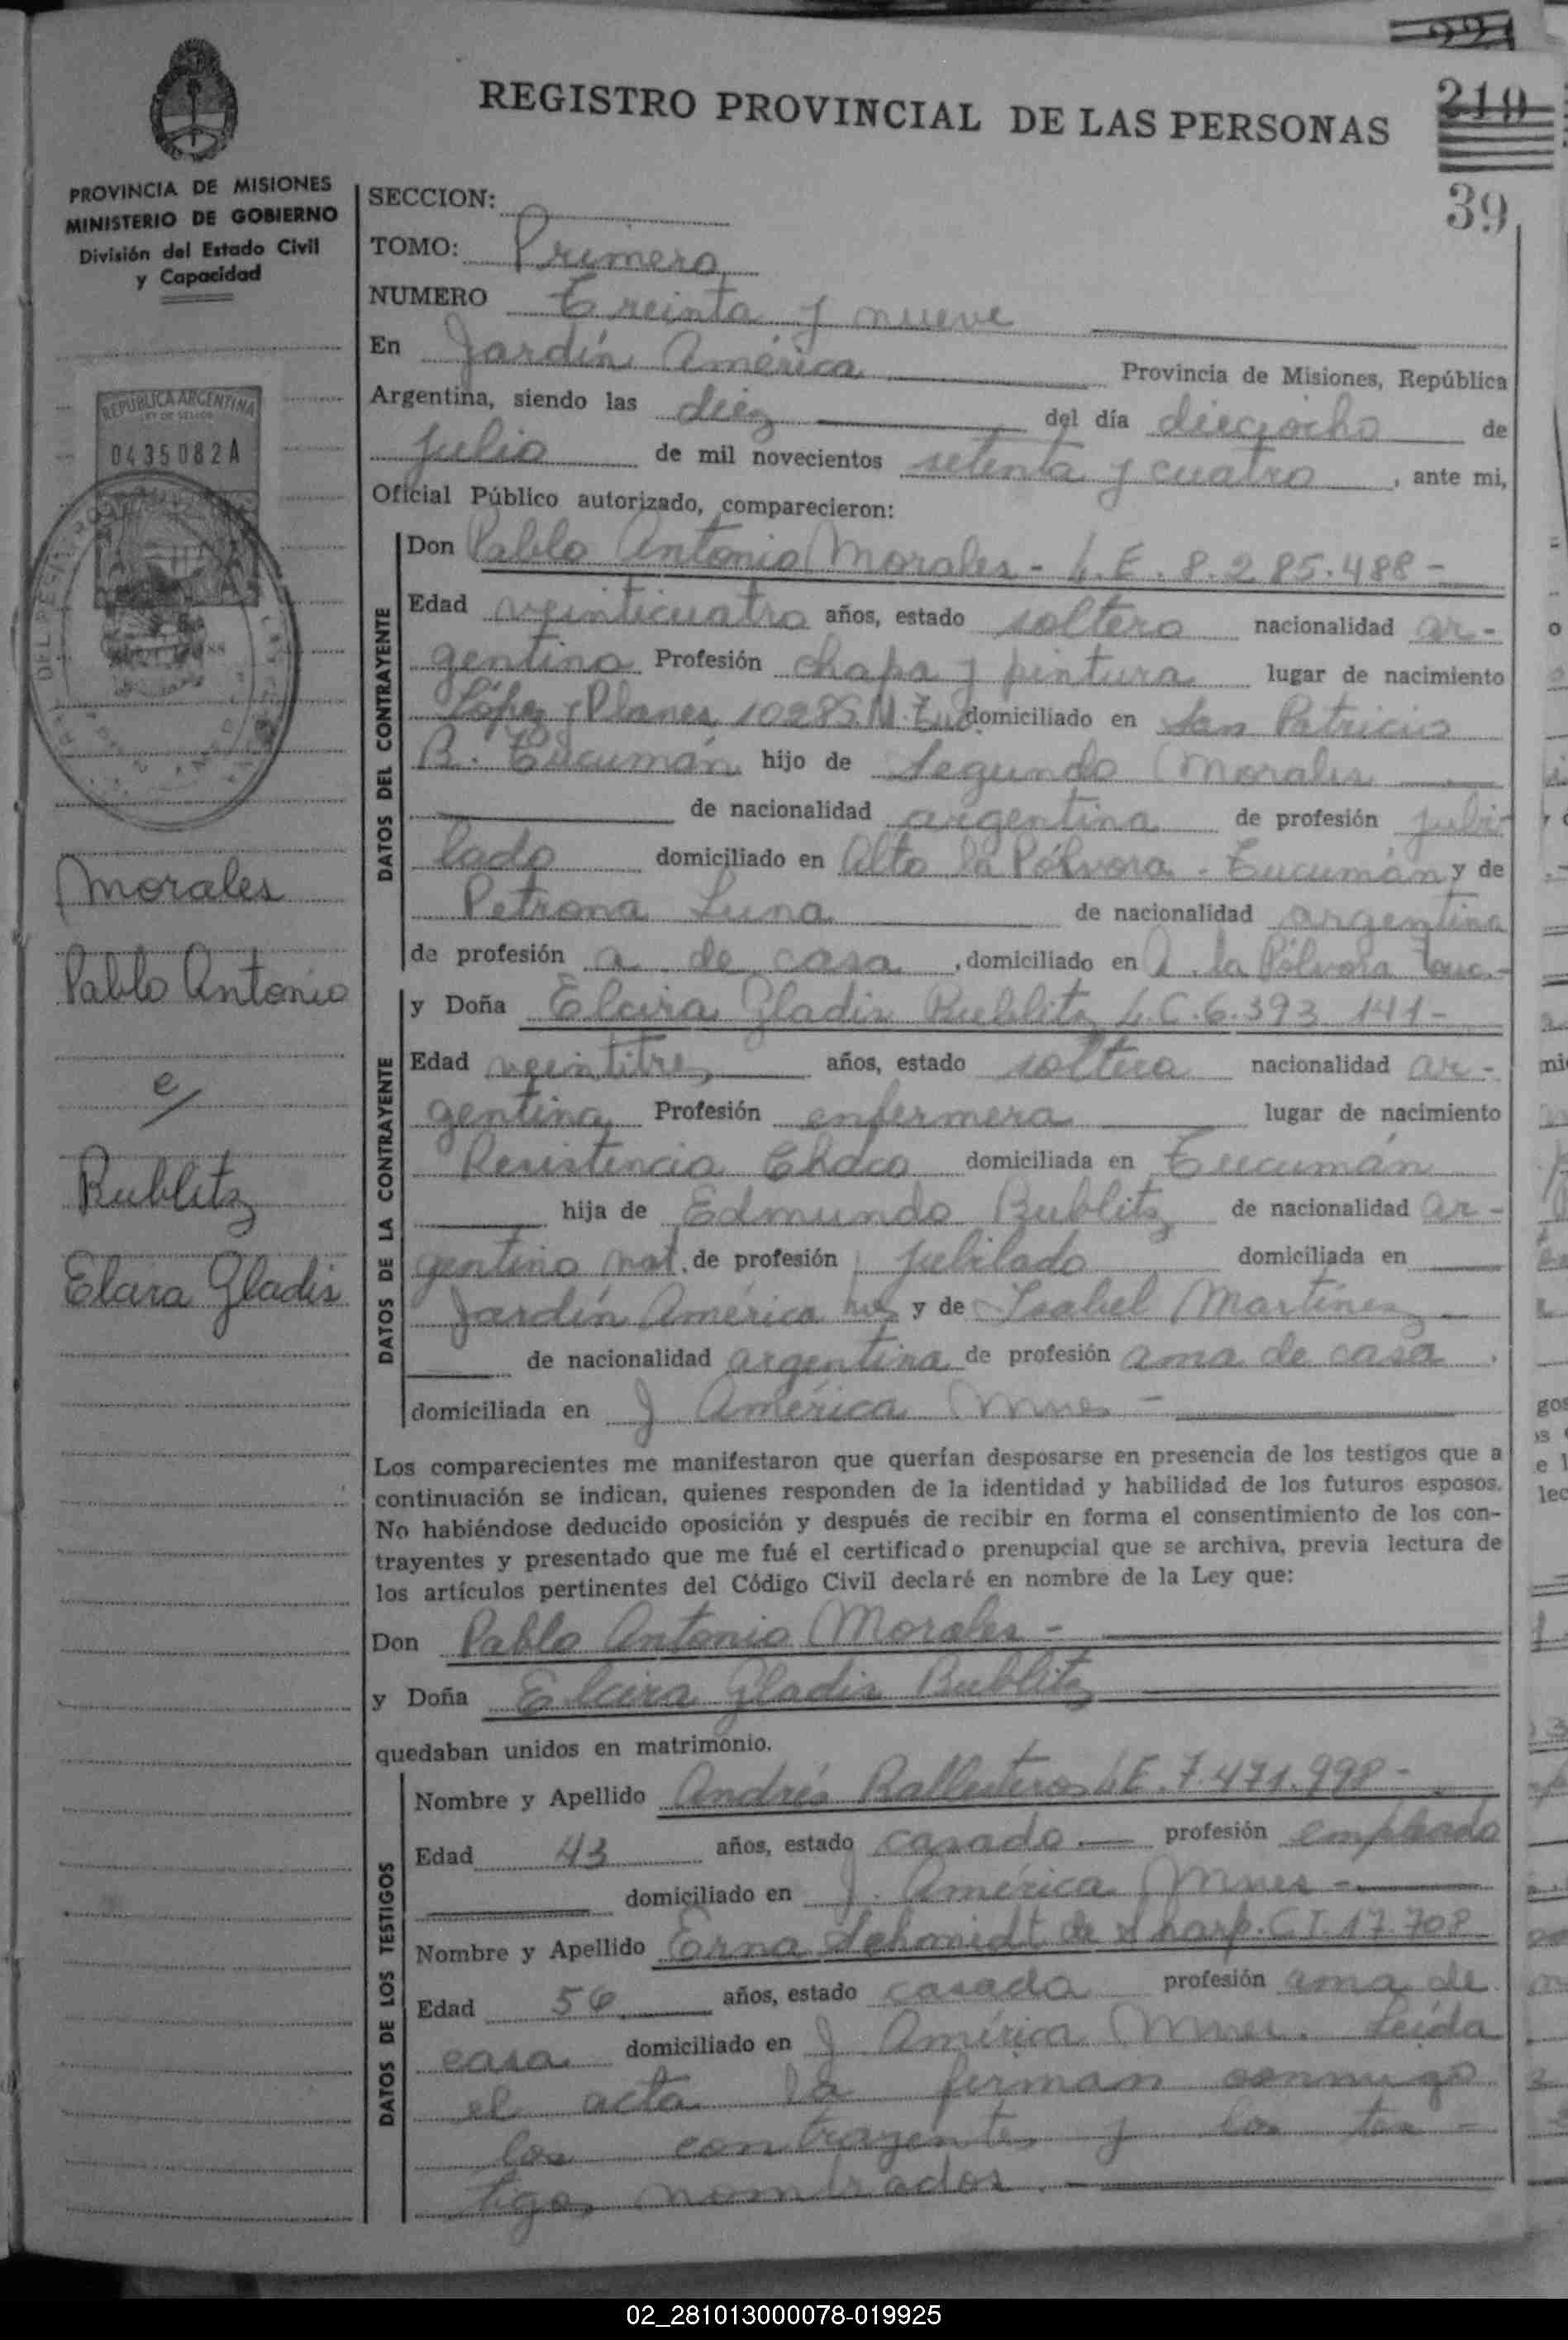 221
REGISTRO PROVINCIAL DE LAS PERSONAS
210
39
PROVINCIA DE MISIONES
MINISTERIO DE GOBIERNO
División del Estado Civil
y Capacidad
REPUBLICA ARGENTINA
LEY DE SELLOS
0435082A
Morales
Pablo Antonio
e/
Bublitz
Elcira Gladis
SECCION:
TOMO: Primero
NUMERO Treinta y nueve
En Jardín América Provincia de Misiones, República
Argentina, siendo las diez del día dieciocho de
Julio de mil novecientos setenta y cuatro, ante mi,
Oficial Público autorizado, comparecieron:
DATOS DEL CONTRAYENTE
Don Pablo Antonio Morales - L.E. 8.285.488 -
Edad veinticuatro años, estado soltero nacionalidad ar-
gentino Profesión chapa y pintura lugar de nacimiento
López y Planes 1028 S.M. Tuc. domiciliado en San Patricio
B. Tucumán hijo de Segundo Morales
de nacionalidad argentina de profesión jubi-
lado domiciliado en Alto la Pólvora - Tucumán y de
Petrona Luna de nacionalidad argentina
de profesión a. de casa, domiciliado en A. la Pólvora Tuc.-
DATOS DE LA CONTRAYENTE
y Doña Elcira Gladis Bublitz L.C. 6.393.141-
Edad veintitres años, estado soltera nacionalidad ar-
gentina Profesión enfermera lugar de nacimiento
Resistencia Chaco domiciliada en Tucumán
hija de Edmundo Bublitz de nacionalidad ar-
gentino nat. de profesión jubilado domiciliada en
Jardín América y de Isabel Martínez
de nacionalidad argentina de profesión ama de casa.
domiciliada en J América Mnes -
Los comparecientes me manifestaron que querían desposarse en presencia de los testigos que a
continuación se indican, quienes responden de la identidad y habilidad de los futuros esposos.
No habiéndose deducido oposición y después de recibir en forma el consentimiento de los con-
trayentes y presentado que me fué el certificado prenupcial que se archiva, previa lectura de
los artículos pertinentes del Código Civil declaré en nombre de la Ley que:
Don Pablo Antonio Morales -
y Doña Elcira Gladis Bublitz
quedaban unidos en matrimonio.
DATOS DE LOS TESTIGOS
Nombre y Apellido Andrés Ballesteros L.E. 7.471.998 -
Edad 43 años, estado casado. profesión empleado
domiciliado en J. América Mnes -
Nombre y Apellido Erna Schmidt de Sharp. C.I. 17.708
Edad 56 años, estado casada profesión ama de
casa domiciliado en J América Mnes. Leída
el acta la firman conmigo
los contrayentes y los tes-
tigos nombrados.
02_281013000078-019925